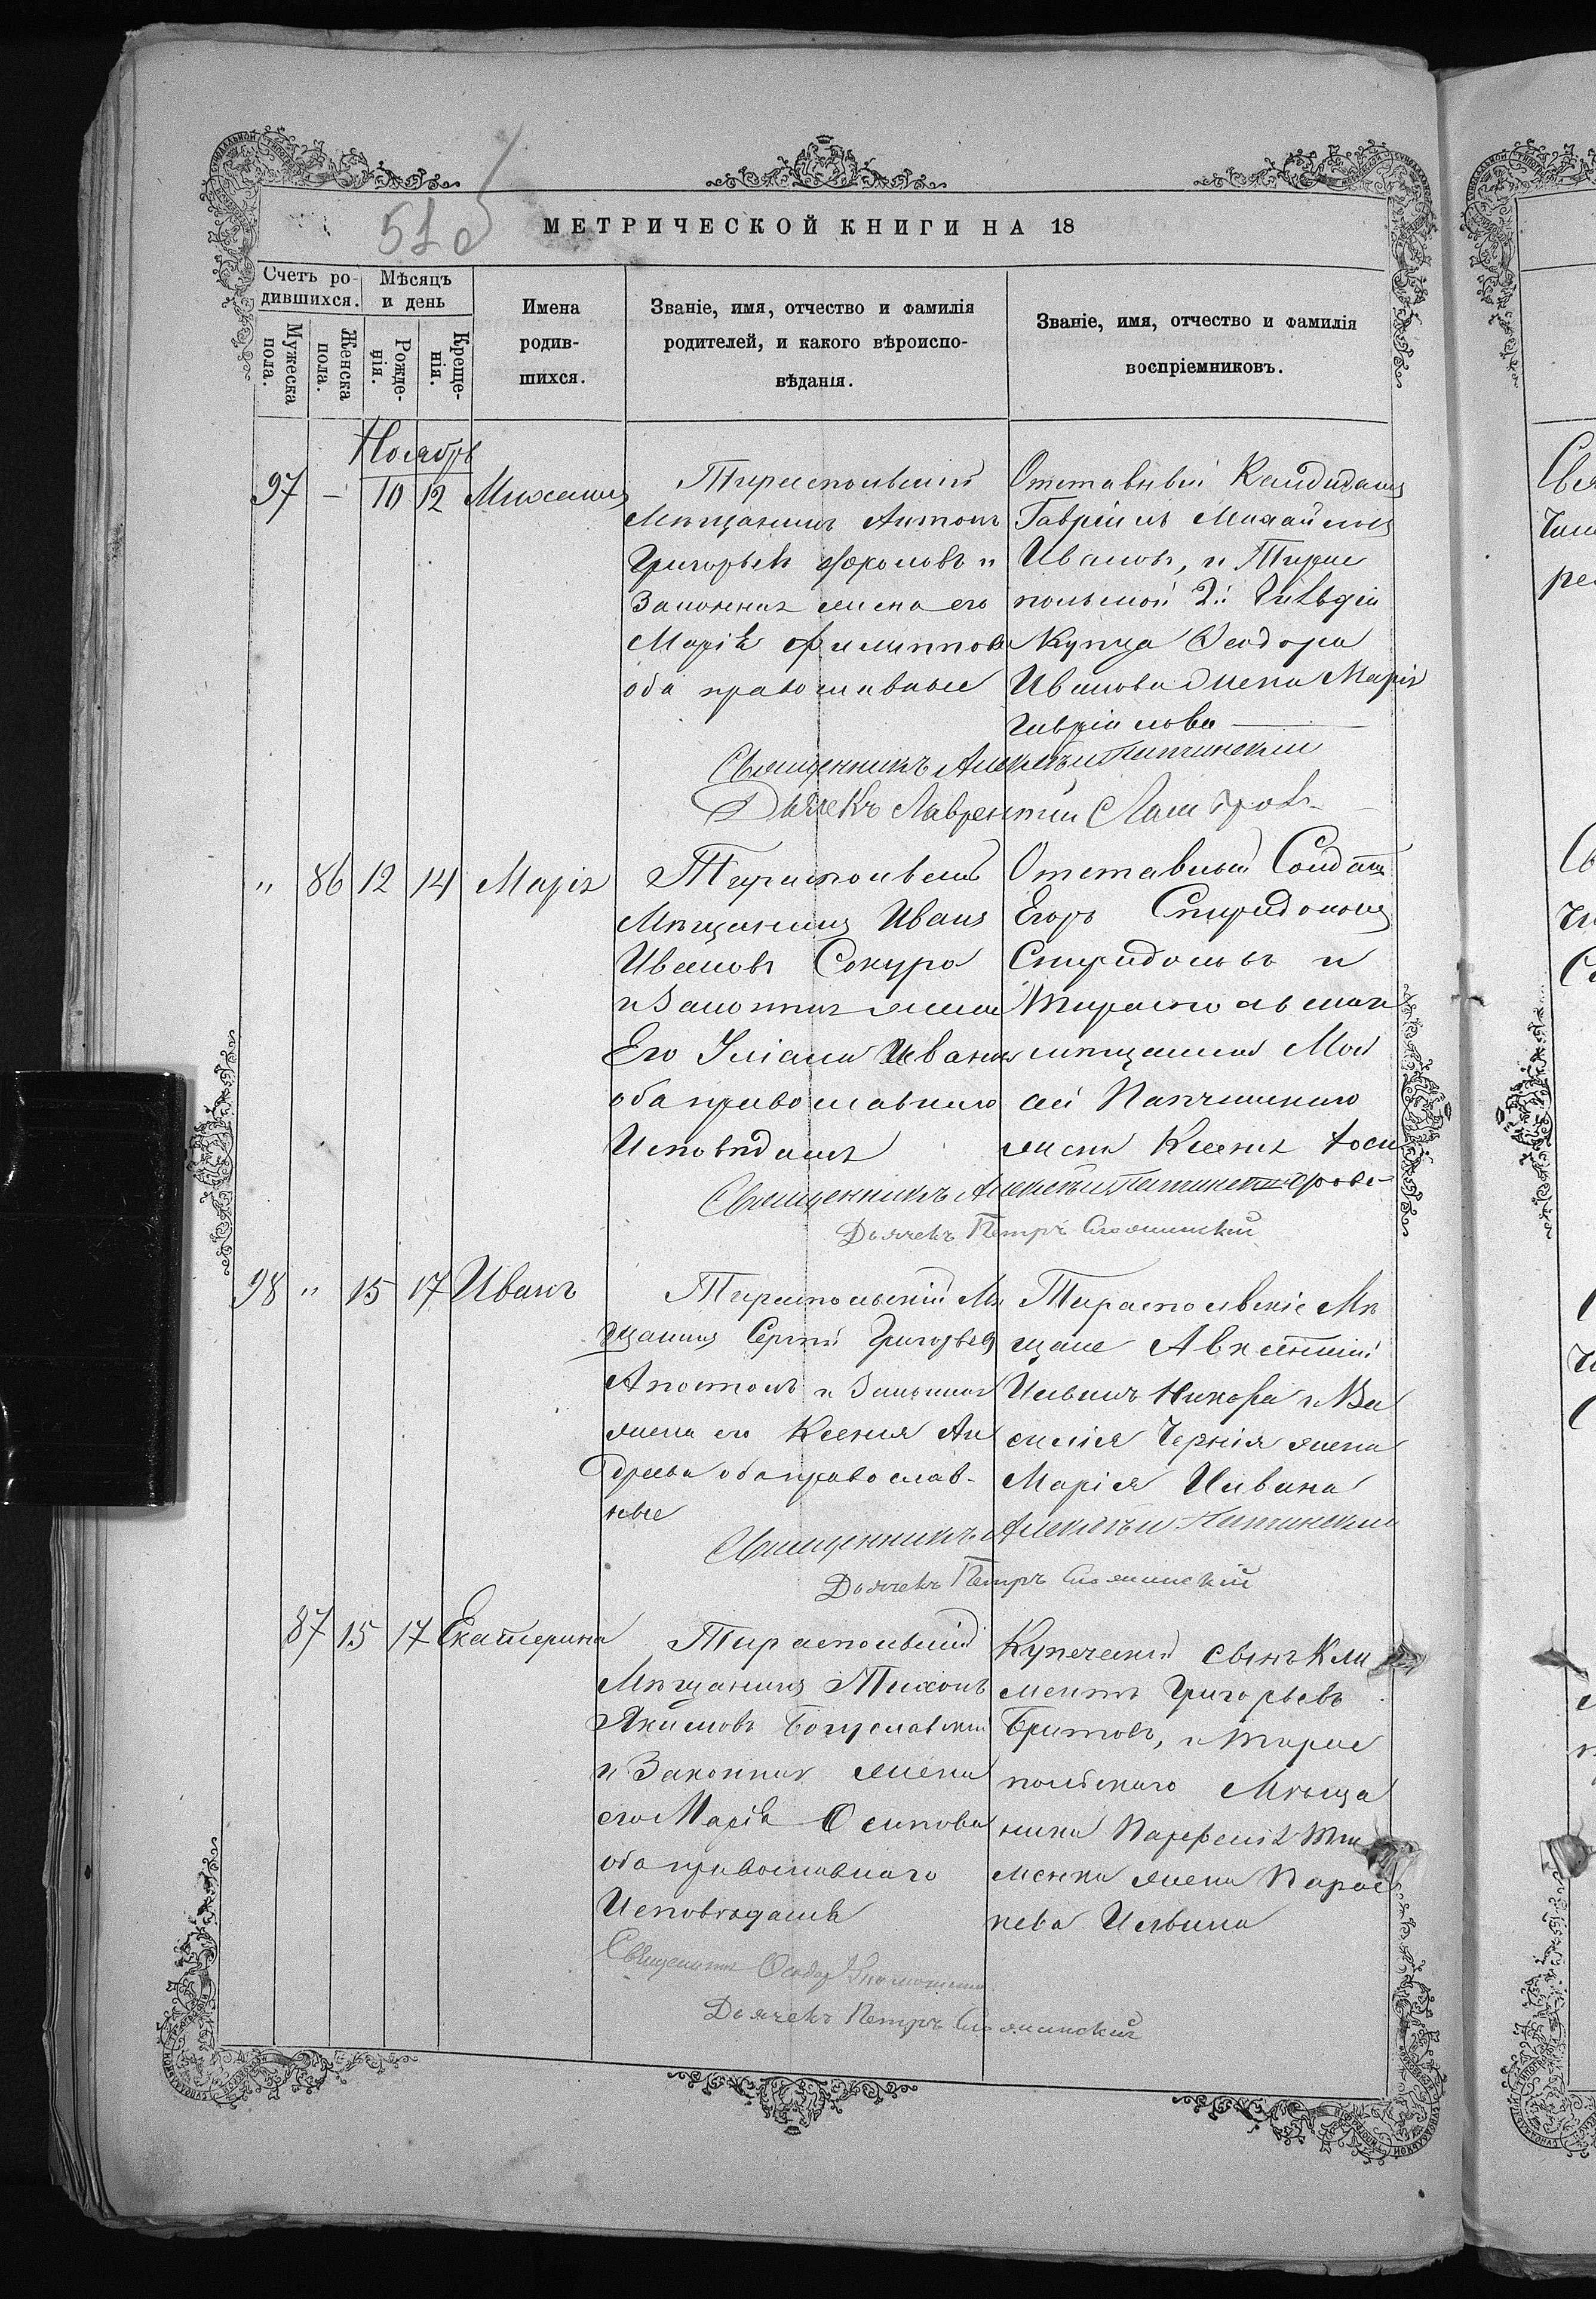 510
МЕТРИЧЕСКОЙ КНИГИ НА 18
Счетъ ро-
дившихся.
Мѣсяцъ
и день
Мужеска
пола.
Женска
пола.
Рожде-
нія.
Креще-
нія.
Имена
родив-
шихся.
Званіе, имя, отчество и фамилія
родителей, и какого вѣроиспо-
вѣданія.
Званіе, имя, отчество и фамилія
воспріемниковъ.
Ноябрь
97 – 10 12 Михаилъ
Тираспольскій
Мѣщанинъ Антонъ
Григорьевъ Фроловъ и
Законная жена его
Марія Филиппова
оба православные
Отставный Кандидатъ
Гавріилъ Михайловъ
Ивановъ, и Тирас
польской 2й Гильдіи
Купца Ѳеодора
Иванова жена Марія
Гавріилова
Священникъ Алексѣй
Дьячекъ Лаврентій
" 86 12 14 Марія
Тираспольскій
Мѣщанинъ Иванъ
Ивановъ Сокура
и Законная жена
Его Уліана Иванова
оба православнаго
Исповѣданія
Отставной Солдатъ
Егоръ Спиридоновъ
Спиридоновъ и
Тираспольскаго
мѣщанина Мои
сей
жена Ксенія Ѳеои
дорова
Священникъ Алексѣй
Дьячекъ Петръ
98 " 15 17 Иванъ
Тираспольскій Мѣ
щанинъ Сергѣй Григорьевъ
Апостолъ и Законная
жена его Ксенія Ан
дреева оба православ-
ные
Тираспольскіе Мѣ
щане Авксентій
Ильинъ Никора и Ва
силія Чернія жена
Марія Ильина
Священникъ Алексѣй
Дьячекъ Петръ
87 15 17 Екатерина
Тираспольскій
Мѣщанинъ Тихонъ
Якимовъ Богуславскій
и Законная жена
его Марія Осипова
оба православнаго
Исповѣданія
Купеческій сынъ Кли
ментъ Григорьевъ
Бритовъ, и Тирас
польскаго Мѣща
нина Парфенія Ти
менка жена Парас
кева Ильина
Священникъ Ѳеодоръ
Дьячекъ Петръ